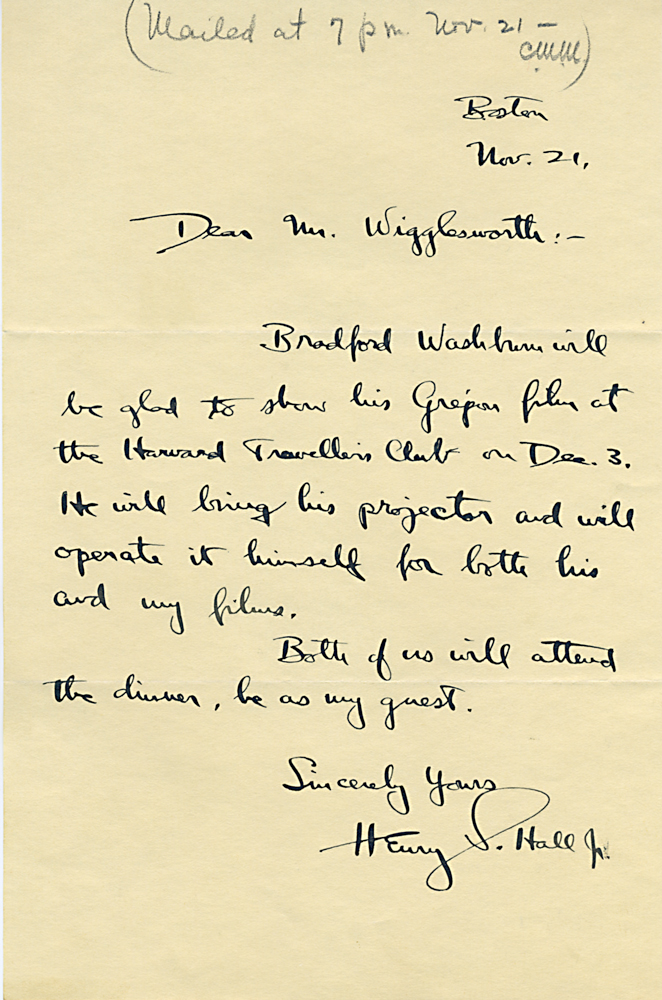 (Mailed at 7 pm. Nov. 21 —
Boston
Nov. 21,
Dear Mr. Wigglesworth:—
Bradford Washburn will
be glad to show his Grépon film at
the Harvard Travellers Club on Dec. 3.
He will bring his projector and will
operate it himself for both his
and my films.
Both of us will attend
the dinner, he as my guest.
Sincerely Yours
Henry S. Hall Jr.